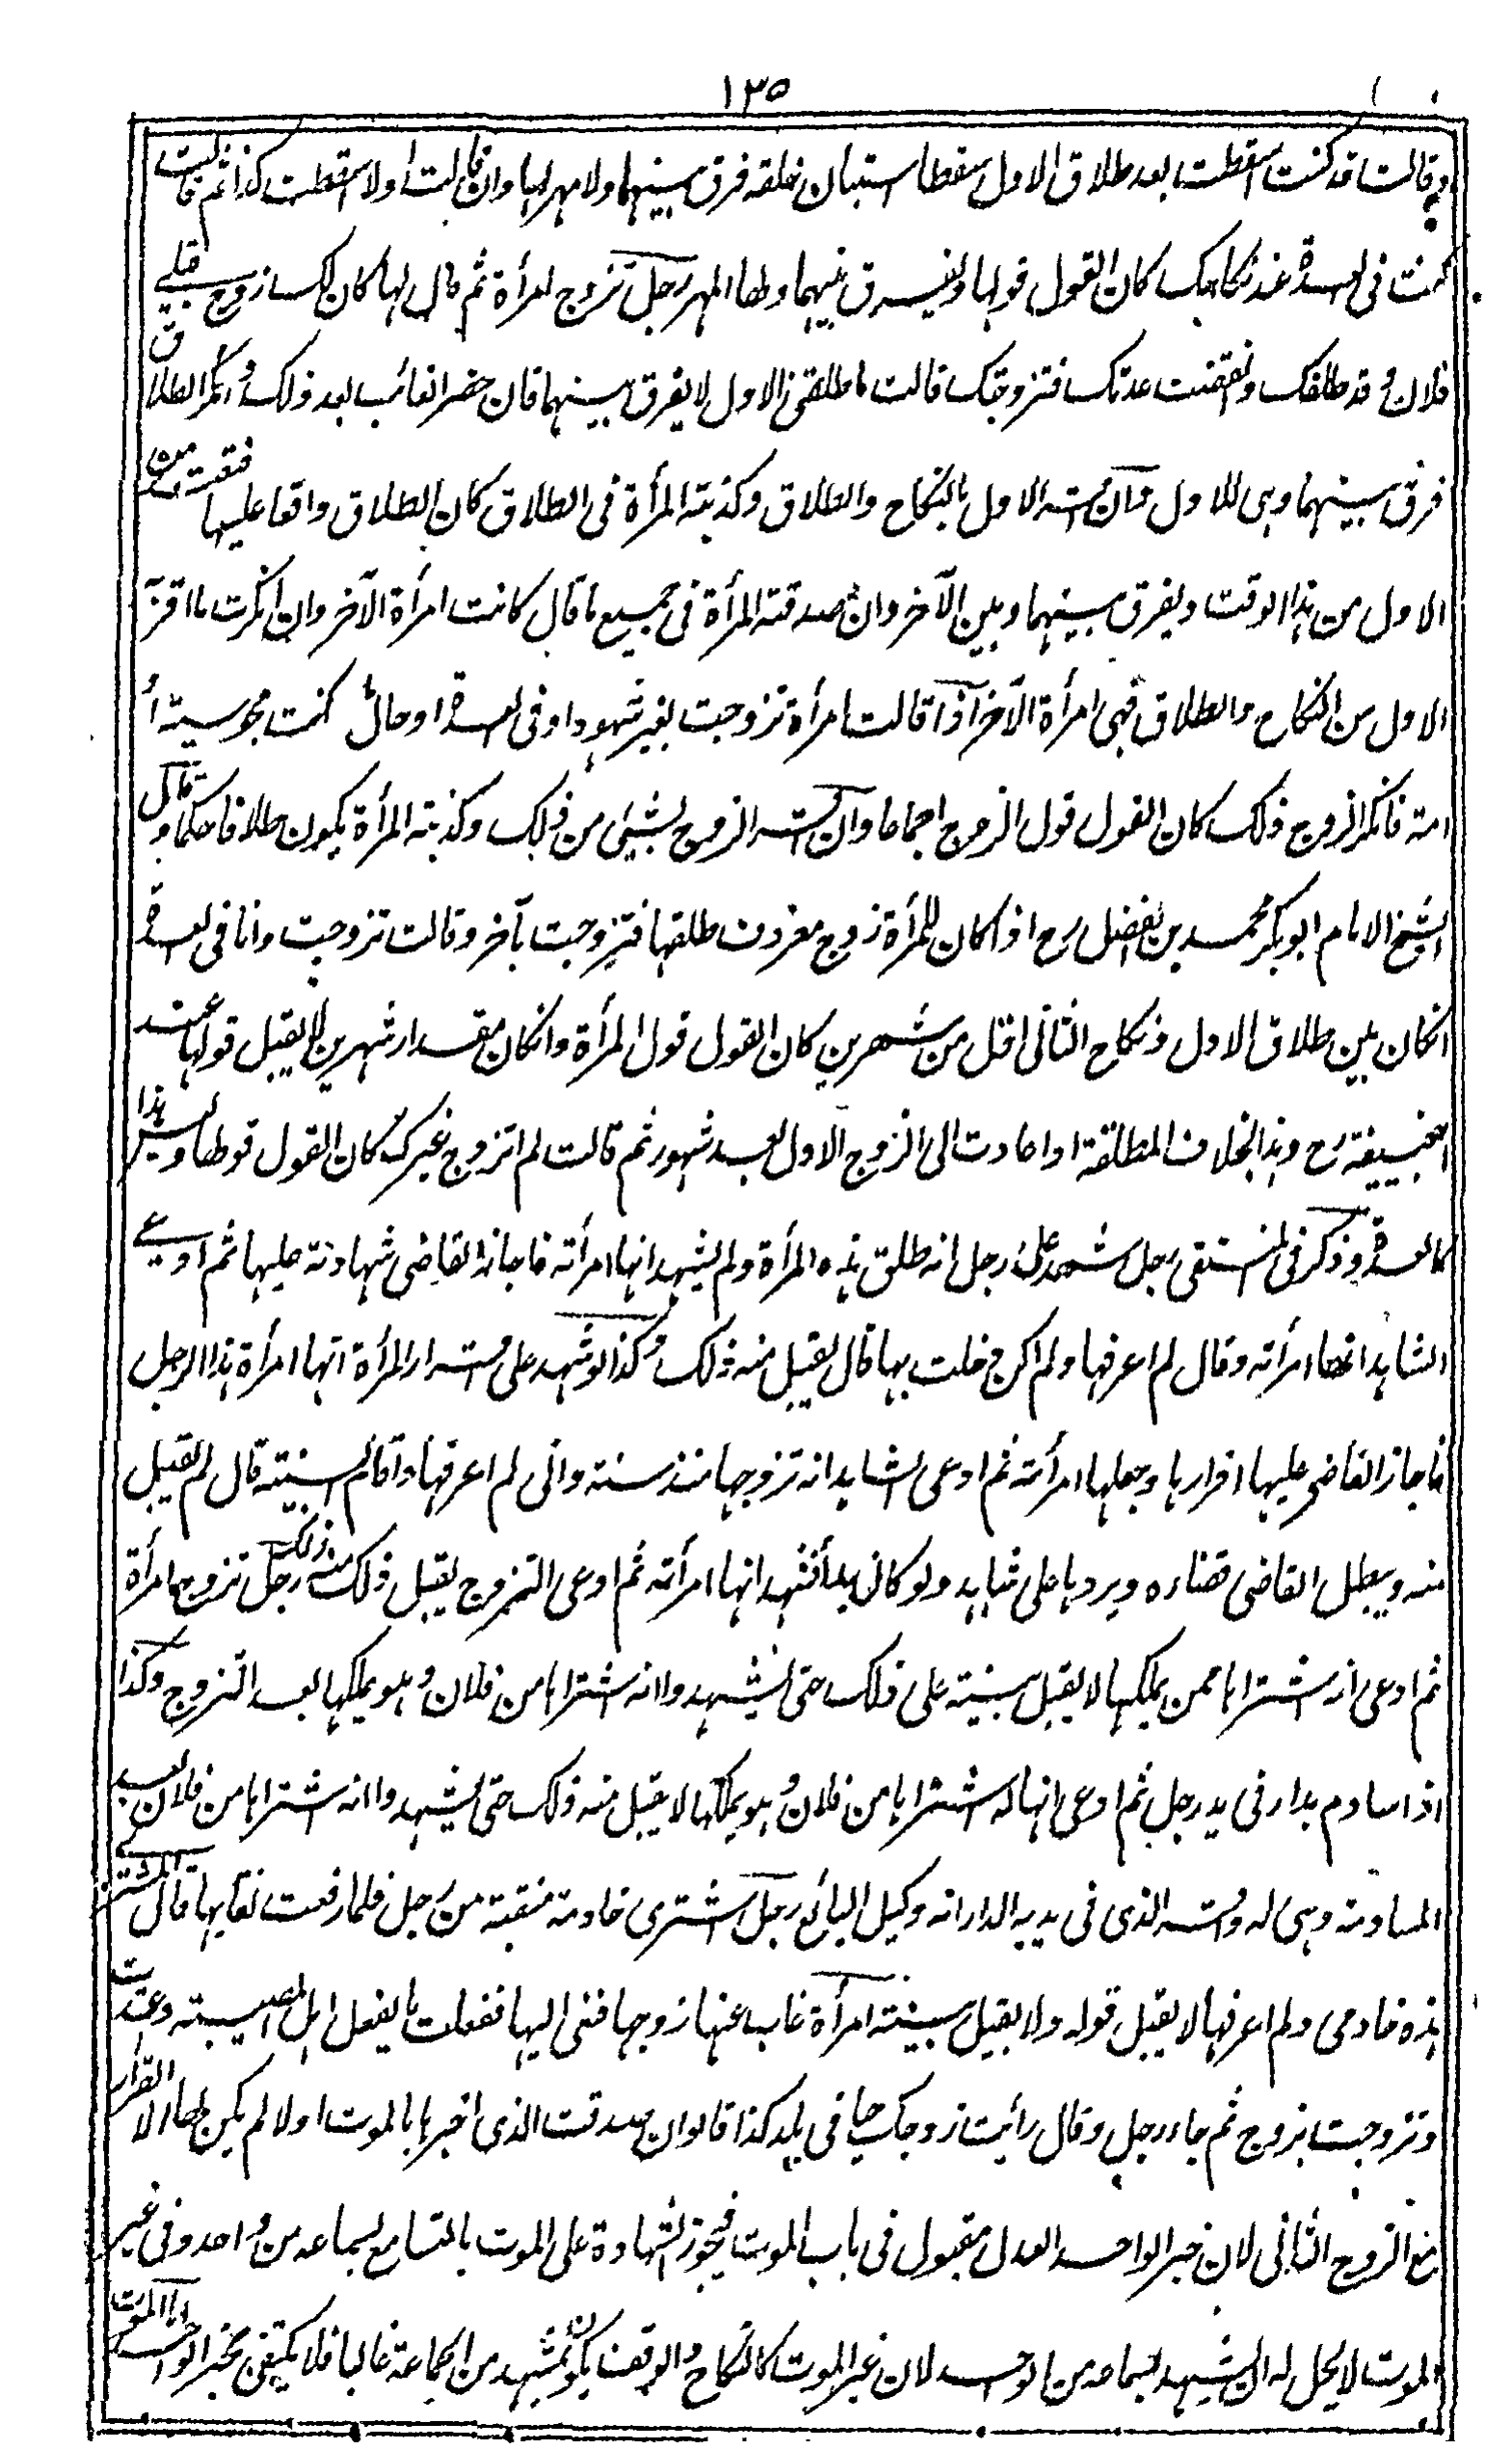 ١٣٥
وقالت قد كنت اسقطت بعد طلاق الاول سقطا استبان خلقه فرق بينهما ولا مهر لها وان قالت اولا اسقطت كذا ثم قالت
كنت فى العدة عند نكاحك كان القول قولها ويفرق بينهما ولها المهر رجل تزوج امرأة ثم قال لها كان لك زوج قبلى
فلان وقد طلقك وانقضت عدتك فتزوجتك قالت ما طلقنى الاول لا يفرق بينهما فان حضر الغائب بعد ذلك وانكر الطلاق
فرق بينهما وهى للاول وان اقر الاول بالنكاح والطلاق وكذبته المرأة فى الطلاق كان الطلاق واقعا عليها فتعتد من
الاول من هذا الوقت ويفرق بينهما وبين الآخر وان صدقته المرأة فى جميع ما قال كانت امرأة الآخر وان انكرت ما اقر به
الاول من النكاح والطلاق فهى امرأة الآخر اذا قالت امرأة تزوجت بغير شهود او فى العدة او حال ما كنت مجوسية او
امة فانكر الزوج ذلك كان القول قول الزوج اجماعا وان اقر الزوج بشيئ من ذلك وكذبته المرأة يكون طلاقا حكما وقال
الشيخ الامام ابو بكر محمد بن الفضل رح اذا كان للمرأة زوج معروف طلقها فتزوجت بآخر وقالت تزوجت وانا فى العدة
انكان بين طلاق الاول ونكاح الثانى اقل من شهرين كان القول قول المرأة وانكان مقدار شهرين لا يقبل قولها عند
ابيحنيفة رح وهذا بخلاف المطلقة اذا عادت الى الزوج الاول بعد شهور ثم قالت لم اتزوج غيرك كان القول قولها وليس هذا
كالعدة وذكر فى المنتقى رجل شهد على رجل انه طلق هذه المرأة ولم يشهد انها امرأته فاجاز القاضى شهادته عليها ثم ادعى
الشاهد انها امرأته وقال لم اعرفها ولم اكن دخلت بها قال يقبل منه ذلك وكذا لو شهد على اقرار المرأة انها امرأة هذا الرجل
فاجاز القاضى عليها اقرارها وجعلها امرأته ثم ادعى الشاهد انه تزوجها منذ سنة وانى لم اعرفها واقام البينة قال لم يقبل
منه ويبطل القاضى قضاءه ويردها على الشاهد ولو كان بدأ فشهد انها امرأته ثم ادعى التزوج لم يقبل ذلك منه رجل تزوج امرأة
ثم ادعى انه اشتراها ممن يملكها لا يقبل بينته على ذلك حتى يشهدوا انه اشتراها من فلان وهو يملكها بعد التزوج وكذا
اذا ساوم بدار فى يد رجل ثم ادعى انها له اشتراها من فلان وهو يملكها لا يقبل منه ذلك حتى يشهدوا انه اشتراها من فلان بعد
المساومة وهى له واقر الذى فى يديه الدار انه وكيل البائع رجل اشترى خادمة منقبة من رجل فلما رفعت نقابها قال المشترى
هذه خادمى ولم اعرفها لا يقبل قوله ولا يقبل بينته امرأة غاب عنها زوجها فنعى اليها ففعلت ما يفعل اهل المصيبة واعتدت
وتزوجت بزوج ثم جاء رجل وقال رأيت زوجك حيا فى بلد كذا قالوا ان صدقت الذى اخبرها بالموت اولا لم يكن لها الا القرار
مع الزوج الثانى لان خبر الواحد العدل مقبول فى باب الموت فيجوز الشهادة على الموت بالتسامع لسماعه من واحد وفى غير
الموت لا يحل له ان يشهد لسماعه من الواحد لان غير الموت كالنكاح والوقف يكون بمشهد من الجماعة غالبا فلا يكتفى بخبر الواحد اما الموت